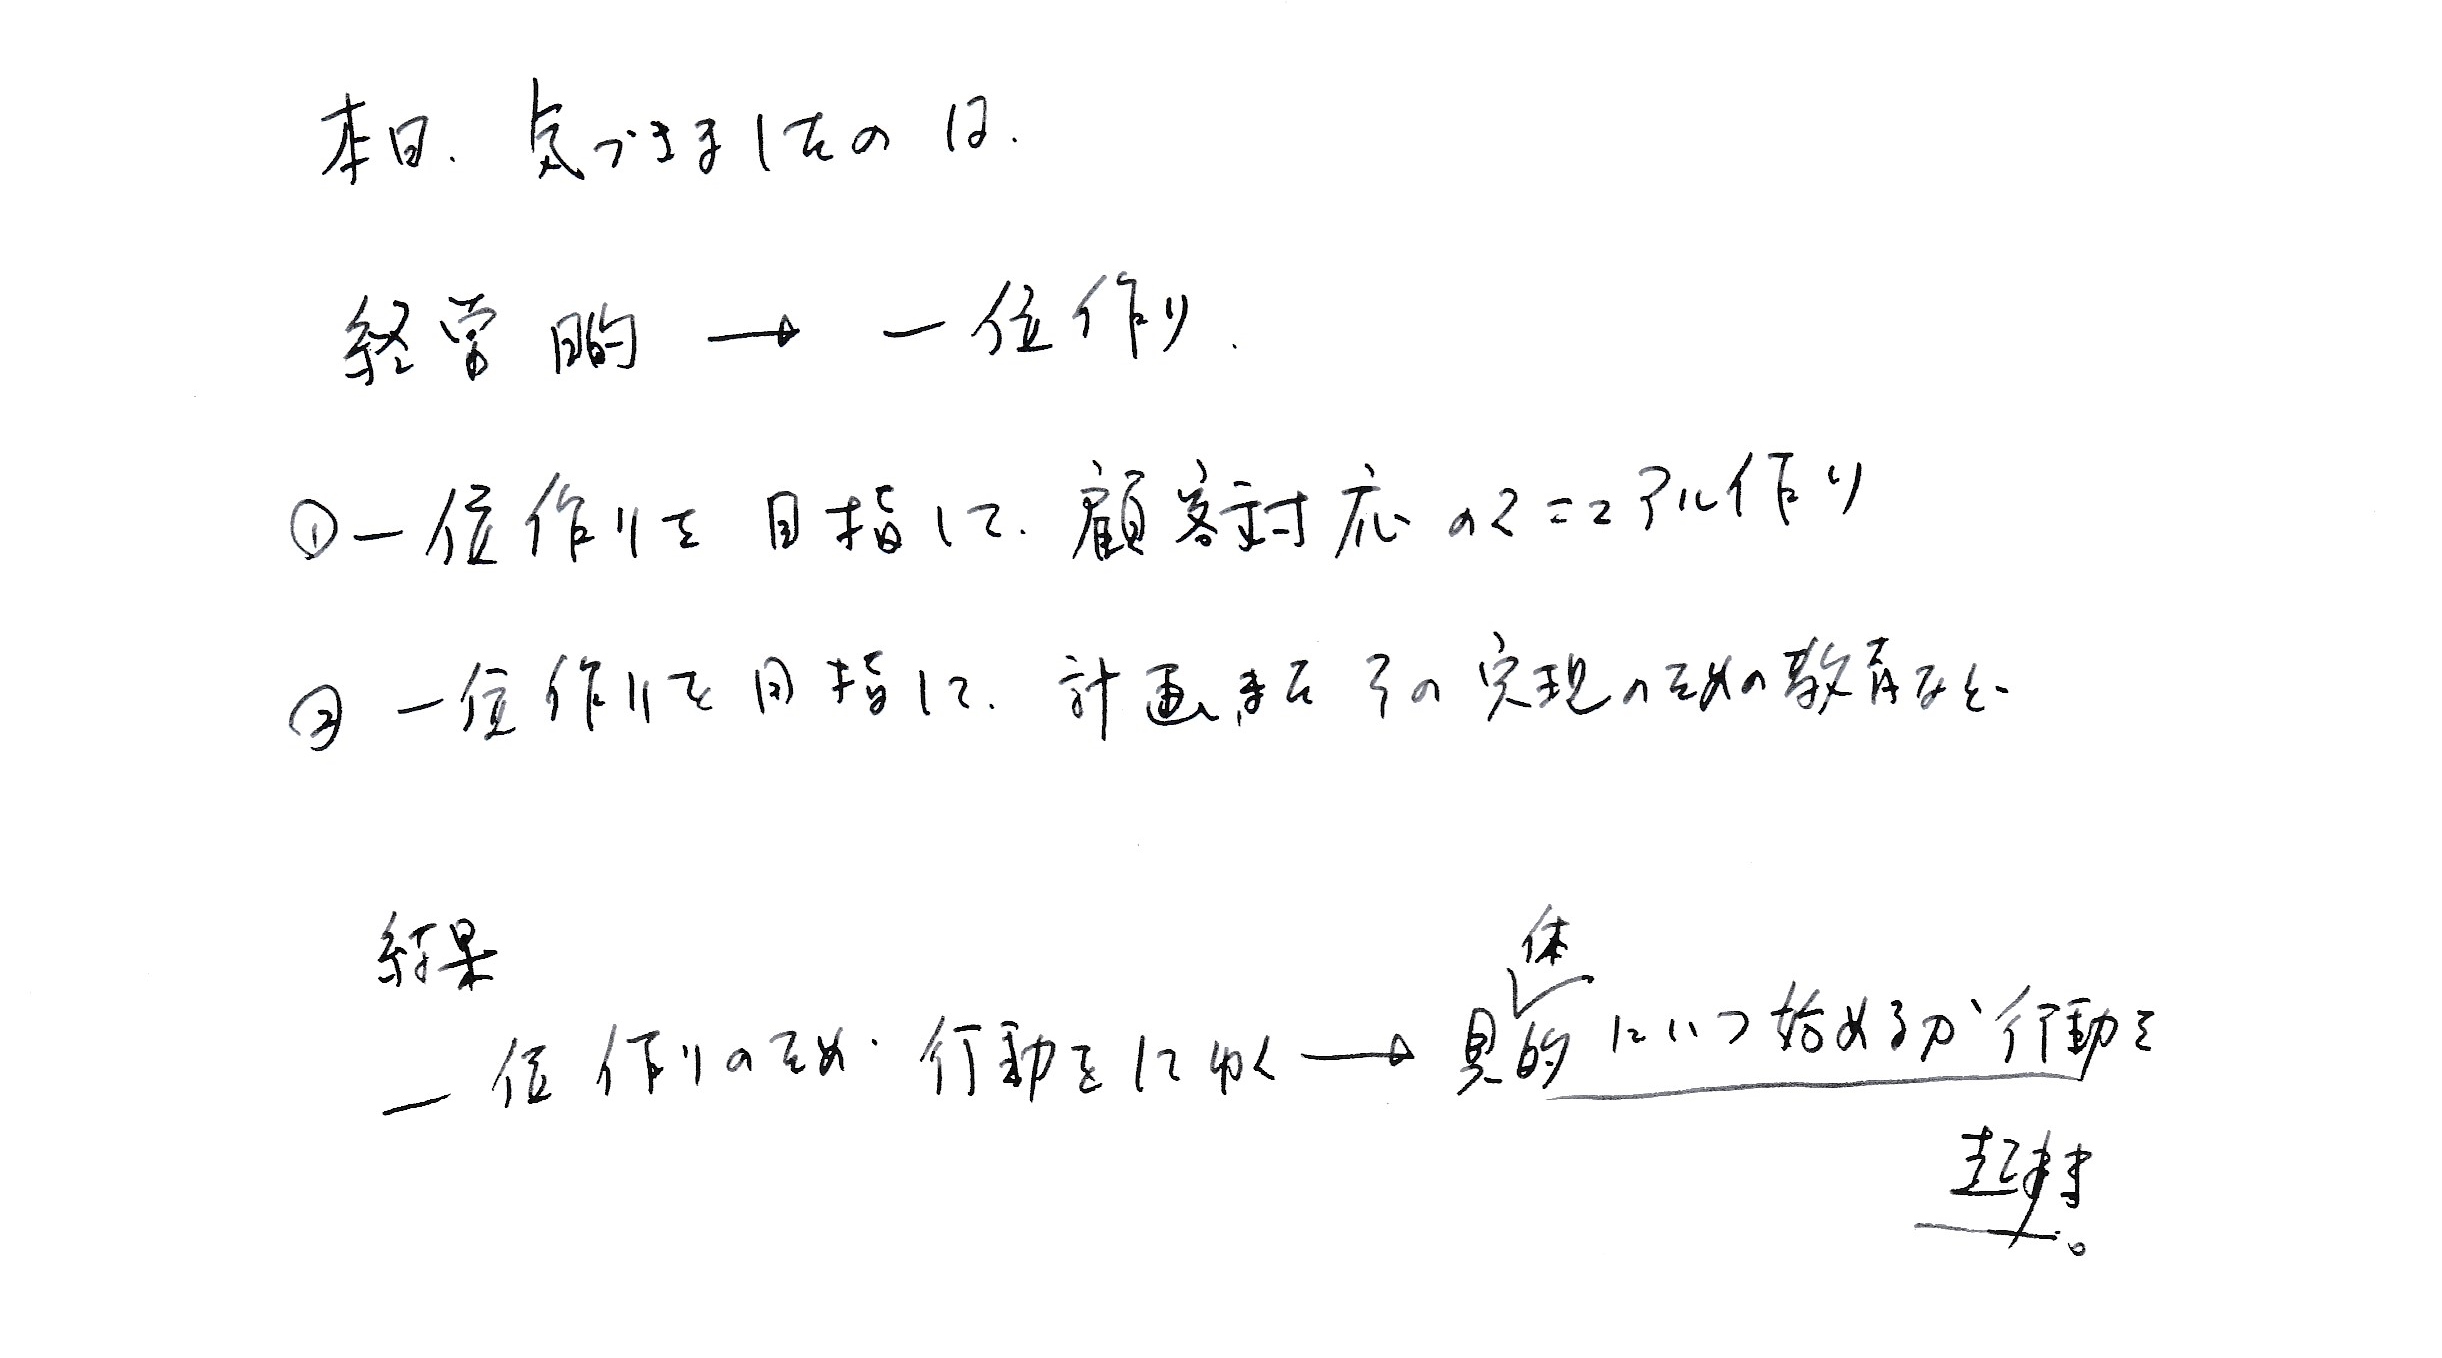 本日、気づきましたのは、
経営目的 → 一位作り、
①一位作りを目指して、顧客対応のマニュアル作り
② 一位作りを目指して、計画、またその実現のための教育など、
結果
一位作りのため、行動をしてゆく → 具体的にいつ始めるか行動を
起こす。